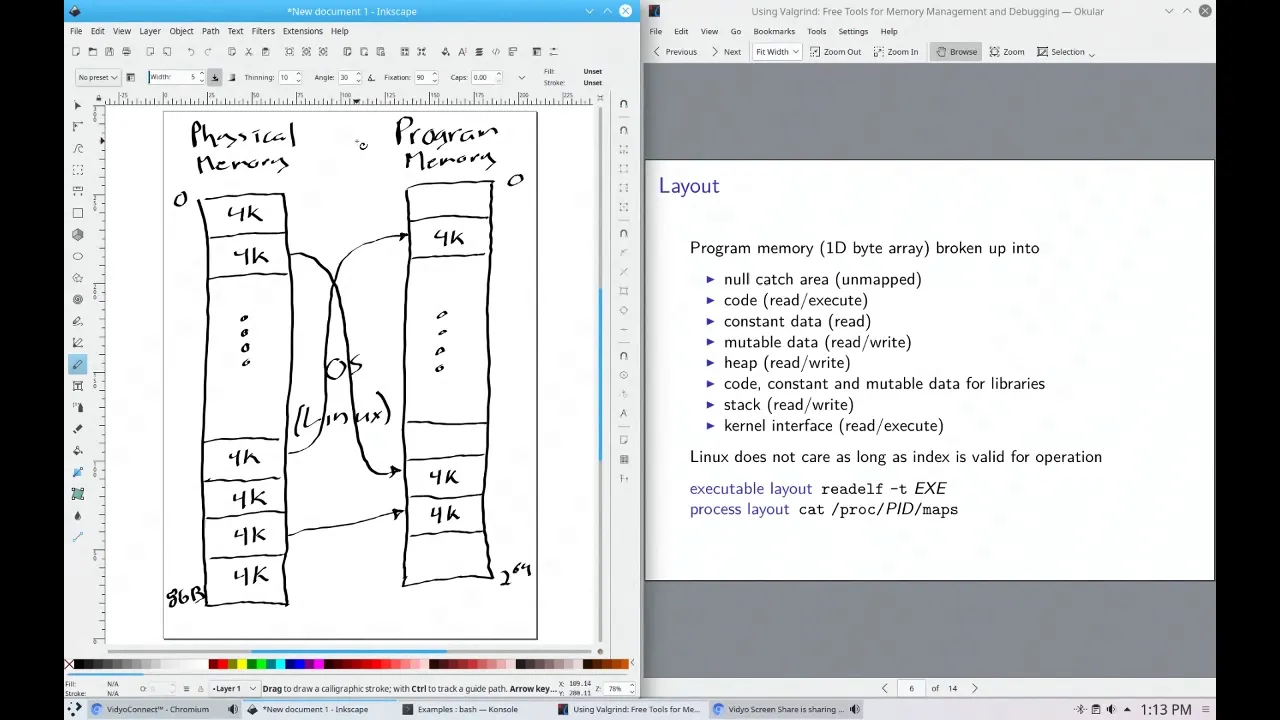 *New document 1 - Inkscape
File Edit View Layer Object Path Text Filters Extensions Help
No preset Width: 5 Thinning: 10 Angle: 30 Fixation: 90 Caps: 0.00 Fill: Unset
Stroke: Unset
Physical
Memory
Program
Memory
0
0
4K
4K
4K
OS
(Linux)
4K
4K
4K
4K
4K
4K
8GB
2^64
Fill: N/A
Stroke: N/A
O: Layer 1 Drag to draw a calligraphic stroke; with Ctrl to track a guide path. Arrow key... X: 109.14
Y: 280.11 Z: 78%
Using Valgrind: Free Tools for Memory Management and Debugging — Okular
File Edit View Go Bookmarks Tools Settings Help
Previous Next Fit Width Zoom Out Zoom In Browse Zoom Selection
Layout
Program memory (1D byte array) broken up into
► null catch area (unmapped)
► code (read/execute)
► constant data (read)
► mutable data (read/write)
► heap (read/write)
► code, constant and mutable data for libraries
► stack (read/write)
► kernel interface (read/execute)
Linux does not care as long as index is valid for operation
executable layout readelf -t EXE
process layout cat /proc/PID/maps
6 of 14
VidyoConnect™ - Chromium *New document 1 - Inkscape Examples : bash — Konsole Using Valgrind: Free Tools for Me... Vidyo Screen Share is sharing ... 1:13 PM